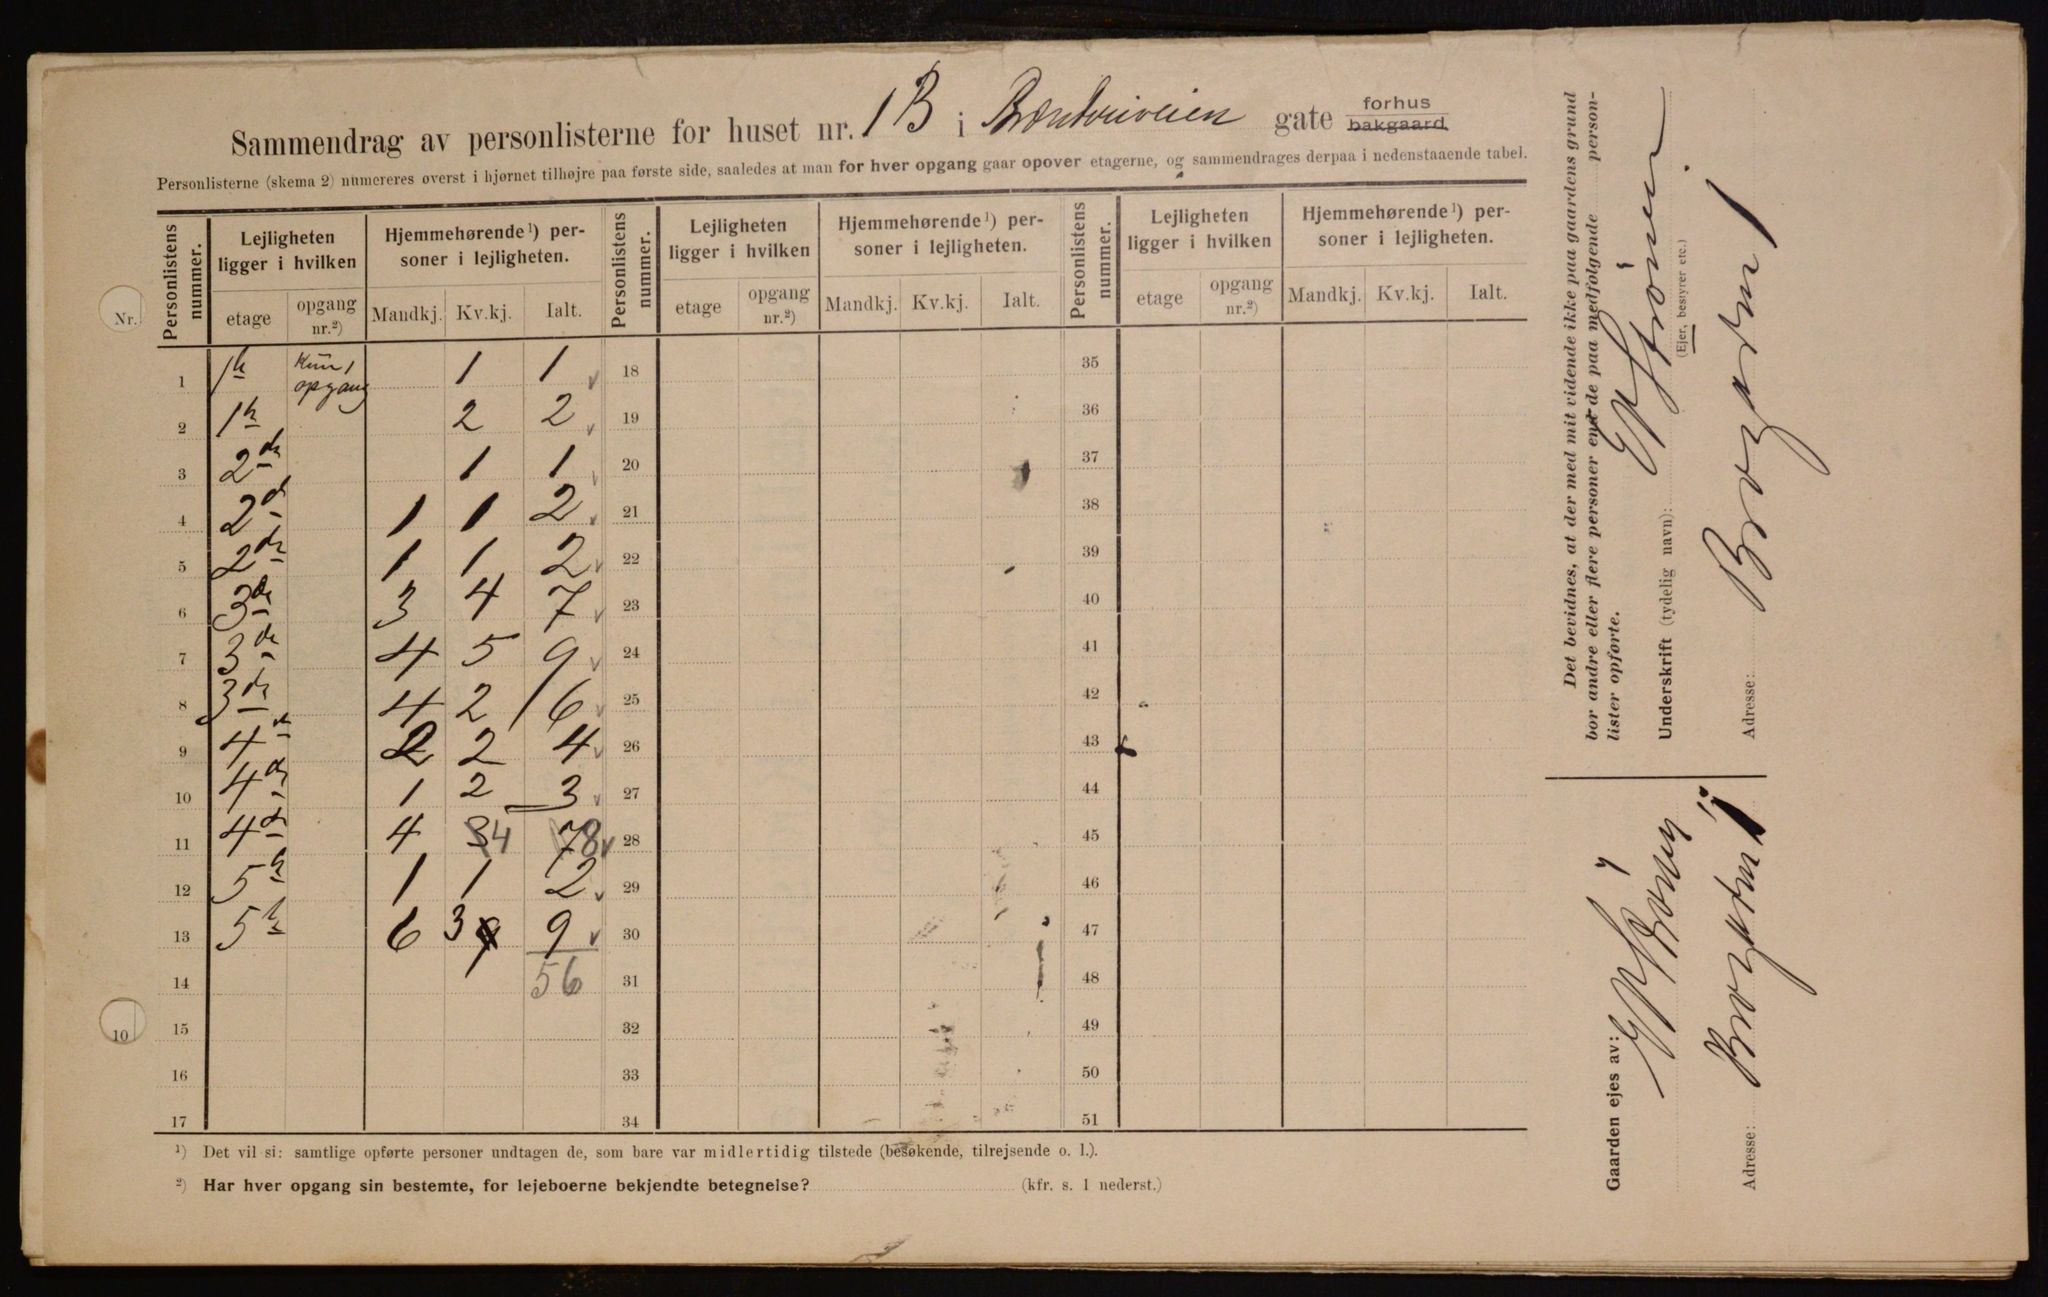 Sammendrag av personlisterne for huset nr. 1 B i gate forhus bakgaard.
Personlisterne (skema 2) numereres øverst i hjørnet tilhøjre paa første side, saaledes at man for hver opgang gaar opover etagerne, og sammendrages derpaa i nedenstaaende tabel.
Personlistens nummer. Lejligheten ligger i hvilken Hjemmehørende¹) personer i lejligheten. Personlistens nummer. Lejligheten ligger i hvilken Hjemmehørende¹) personer i lejligheten. Personlistens nummer. Lejligheten ligger i hvilken Hjemmehørende¹) personer i lejligheten.
etage opgang nr.²) Mandkj. Kv.kj. Ialt. etage opgang nr.²) Mandkj. Kv.kj. Ialt. etage opgang nr.²) Mandkj. Kv.kj. Ialt.
Nr.
1 1ste Kun 1 opgang 1 1 18 35
2 1ste 2 2 19 36
3 2den 1 1 20 37
4 2den 1 1 2 21 38
5 2den 1 1 2 22 39
6 3de 3 4 7 23 40
7 3de 4 5 9 24 41
8 3de 4 2 6 25 42
9 4de 2 2 4 26 43
10 4de 1 2 3 27 44
11 4de 4 3 4 7 8 28 45
12 5te 1 1 2 29 46
13 5te 6 3 9 30 47
14 56 31 48
10
15 32 49
16 33 50
17 34 51
¹) Det vil si: samtlige opførte personer undtagen de, som bare var midlertidig tilstede (besøkende, tilrejsende o. l.).
²) Har hver opgang sin bestemte, for lejeboerne bekjendte betegnelse? (kfr. s. 1 nederst.)
Det bevidnes, at der med mit vidende ikke paa gaardens grund
bor andre eller flere personer end de paa medfølgende personlister opførte.
Underskrift (tydelig navn):
(Ejer, bestyrer etc.)
Adresse: 1
Gaarden ejes av:
Adresse: